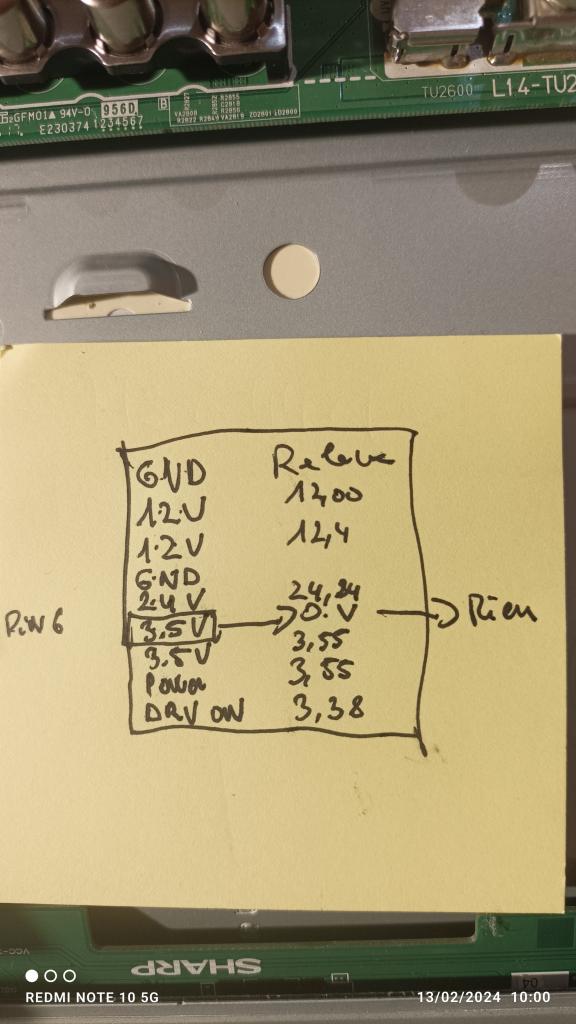 TU2600 L14-TU2
GFM01 94V-0 956D
E230374 1234567
GND Releve
12V 12,00
12V 12,4
GND
24V 24,24
PiN 6 3.5V → 0.V → Rien
3.5V 3,55
Power 3,55
DRV ON 3,38
SHARP
REDMI NOTE 10 5G 13/02/2024 10:00